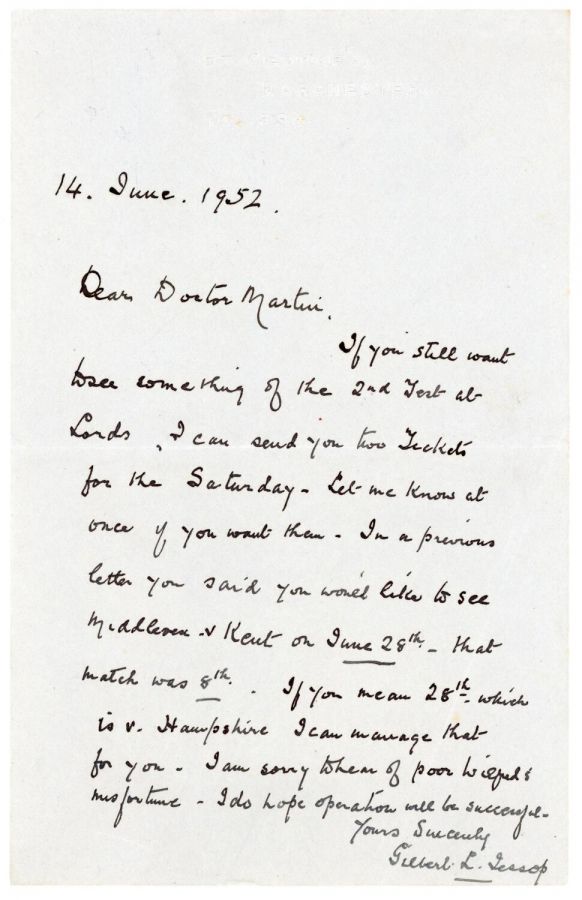 DORCHESTER
14. June. 1952.
Dear Doctor Martin,
If you still want
to see something of the 2nd Test at
Lords, I can send you two Tickets
for the Saturday - Let me know at
once if you want them - In a previous
letter you said you would like to see
Middlesex v Kent on June 28th - that
match was 8th. If you mean 28th which
is v. Hampshire I can manage that
for you - I am sorry to hear of poor
misfortune - I do hope operation will be successful -
Yours Sincerely
Gilbert L. Jessop